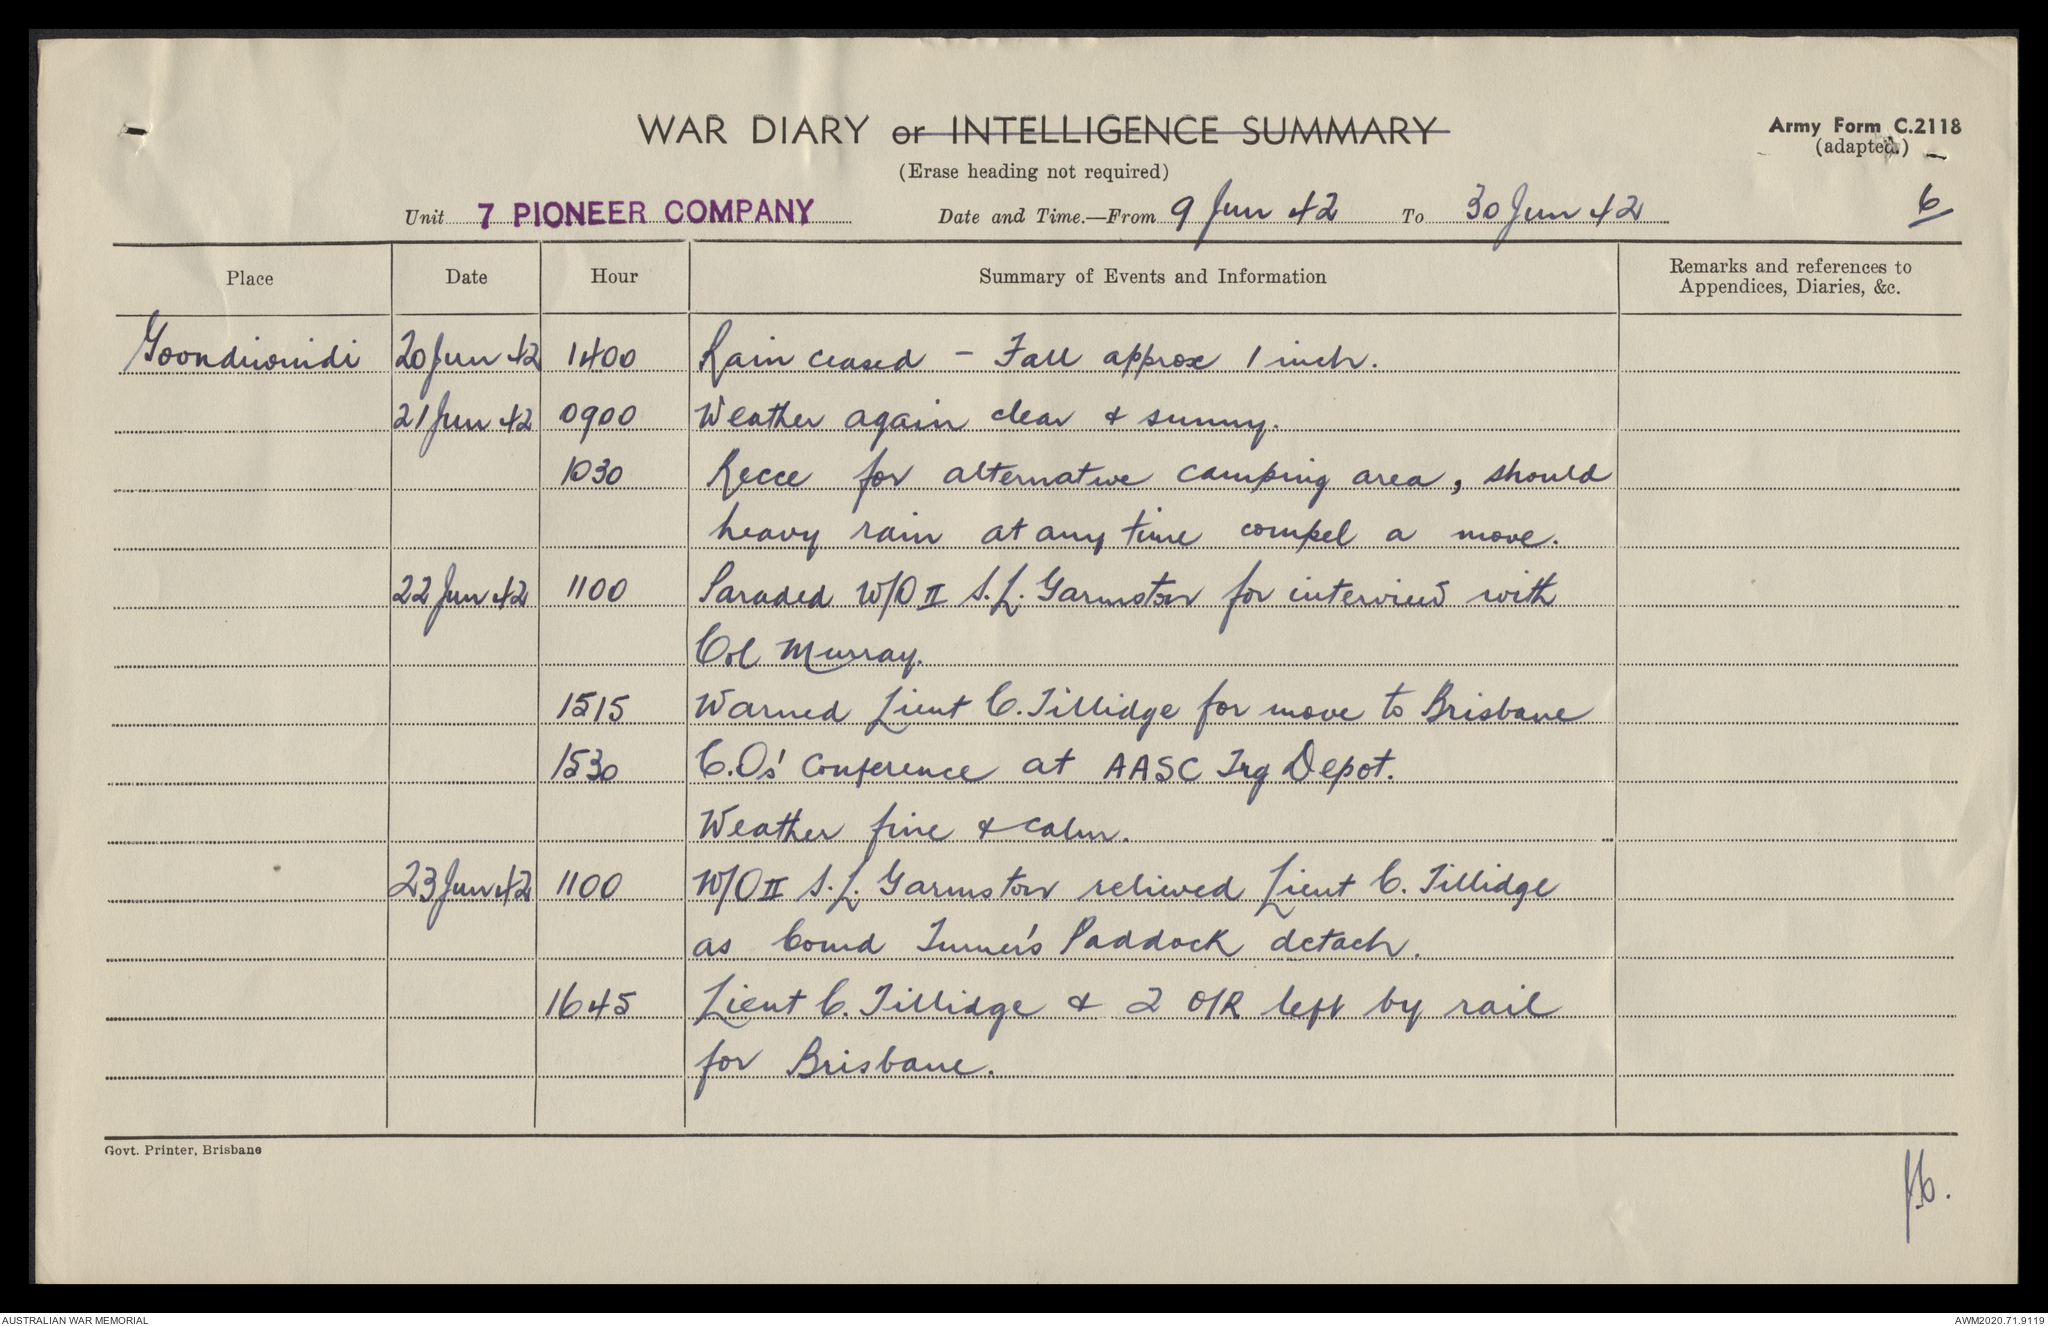 WAR DIARY or INTELLIGENCE SUMMARY
Army Form C.2118
(adapted.)
(Erase heading not required)
Unit 7 PIONEER COMPANY Date and Time.—From 9 Jun 42 To 30 Jun 42 6
Place Date Hour Summary of Events and Information Remarks and references to
Appendices, Diaries, &c.
Goondiwindi 20 Jun 42 1400 Rain ceased - Fall approx 1 inch.
21 Jun 42 0900 Weather again clear & sunny.
1030 Recce for alternative camping area, should
heavy rain at any time compel a move.
22 Jun 42 1100 Paraded W/O II S.L. Garmston for interview with
Col Murray.
1515 Warned Lieut C. Tillidge for move to Brisbane
1530 C.Os' Conference at AASC Trg Depot.
Weather fine & calm.
23 Jun 42 1100 W/O II S.L. Garmston relieved Lieut C. Tillidge
as Comd Turner's Paddock detach.
1645 Lieut C. Tillidge & 2 O/R left by rail
for Brisbane.
Govt. Printer, Brisbane
AUSTRALIAN WAR MEMORIAL AWM2020.71.9119